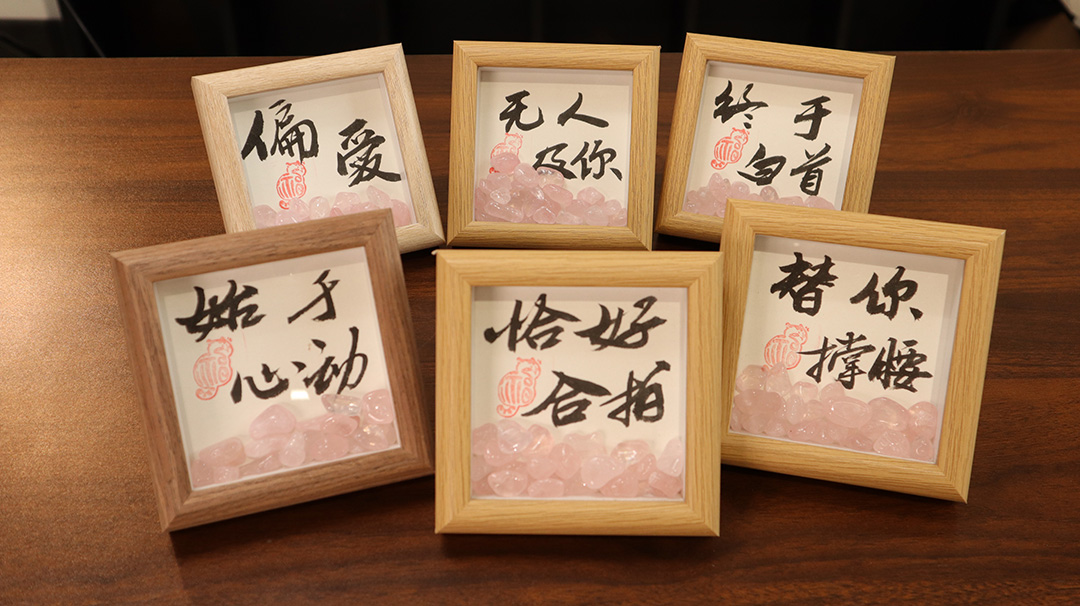 偏爱
无人
及你
终于
白首
始于
心动
恰好
合拍
替你
撑腰